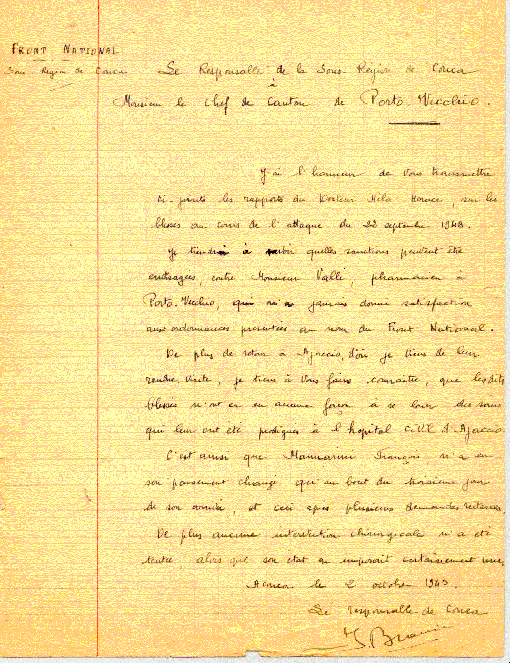 FRONT NATIONAL
Sous-Région de Conca
Le Responsable de la Sous Région de Conca
à
Monsieur le Chef de Canton de Porto Vecchio.
J'ai l'honneur de vous transmettre
ci-joints les rapports du Docteur Horace, sur les
blessés au cours de l'attaque du 22 septembre 1943.
Je tiendrai à savoir quelles sanctions peuvent être
envisagées, contre Monsieur Valli, pharmacien à
Porto-Vecchio, qui n'a jamais donné satisfaction
aux ordonnances présentées au nom du Front National.
De plus de retour à Ajaccio, d'où je viens de leur
rendre visite, je tiens à vous faire connaître, que lesdits
blessés n'ont eu en aucune façon à se louer des soins
qui leur ont été prodigués à l'hopital civil d'Ajaccio.
C'est ainsi que François, n'a eu
son pansement changé qu'au bout du troisième jour
de son arrivée, et ceci après plusieurs demandes
De plus aucune intervention chirurgicale n'a été
tentée alors que son état en imposait certainement une.
Conca le 2 octobre 1943.
Le responsable de Conca